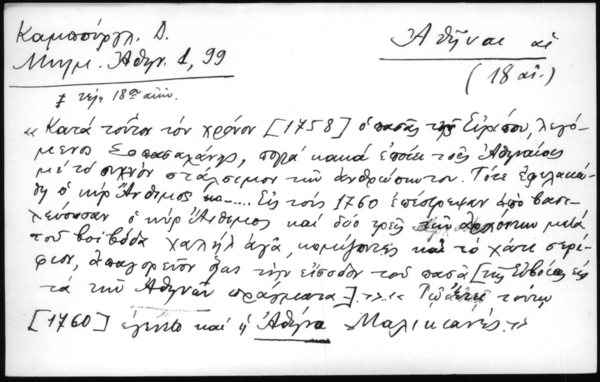 Καμπούρογλ. Δ.
Μνημ. Ἀθην. 1, 99
Ἀθῆναι αἱ
(18 αἰ.)
τέλη 18ου αἰῶν.
« Κατὰ τοῦτον τὸν χρόνον [1758] ὁ πασᾶς τῆς Εὐρίπου, λεγό-
μενος πολλὰ κακὰ ἐποίει τοῖς Ἀθηναίοις
μὲ τὸ συχνὸν στάλσιμον τῶν ἀνθρώπων του. Τότε ἐφυλακώ-
θη ὁ κὺρ Ἄνθιμος ..... Εἰς τοὺς 1760 ἐπέστρεψαν ἀπὸ βασι-
λεύουσαν ὁ κὺρ Ἄνθιμος καὶ δύο τρεῖς τῶν ἀρχόντων μετὰ
τοῦ βοϊβόδα χαλὴλ ἀγᾶ, κομίζοντες καὶ τὸ χάτι σερί-
φιον, ἀπαγορεῦον ὅλως τὴν εἴσοδον τοῦ πασᾶ [τῆς Εὐβοίας εἰς
τὰ τῶν Ἀθηνῶν πράγματα].».« Τῷ ἔτει τούτῳ
[1760] ἐγένετο καὶ ἡ Ἀθήνα Μαλικιανές.»